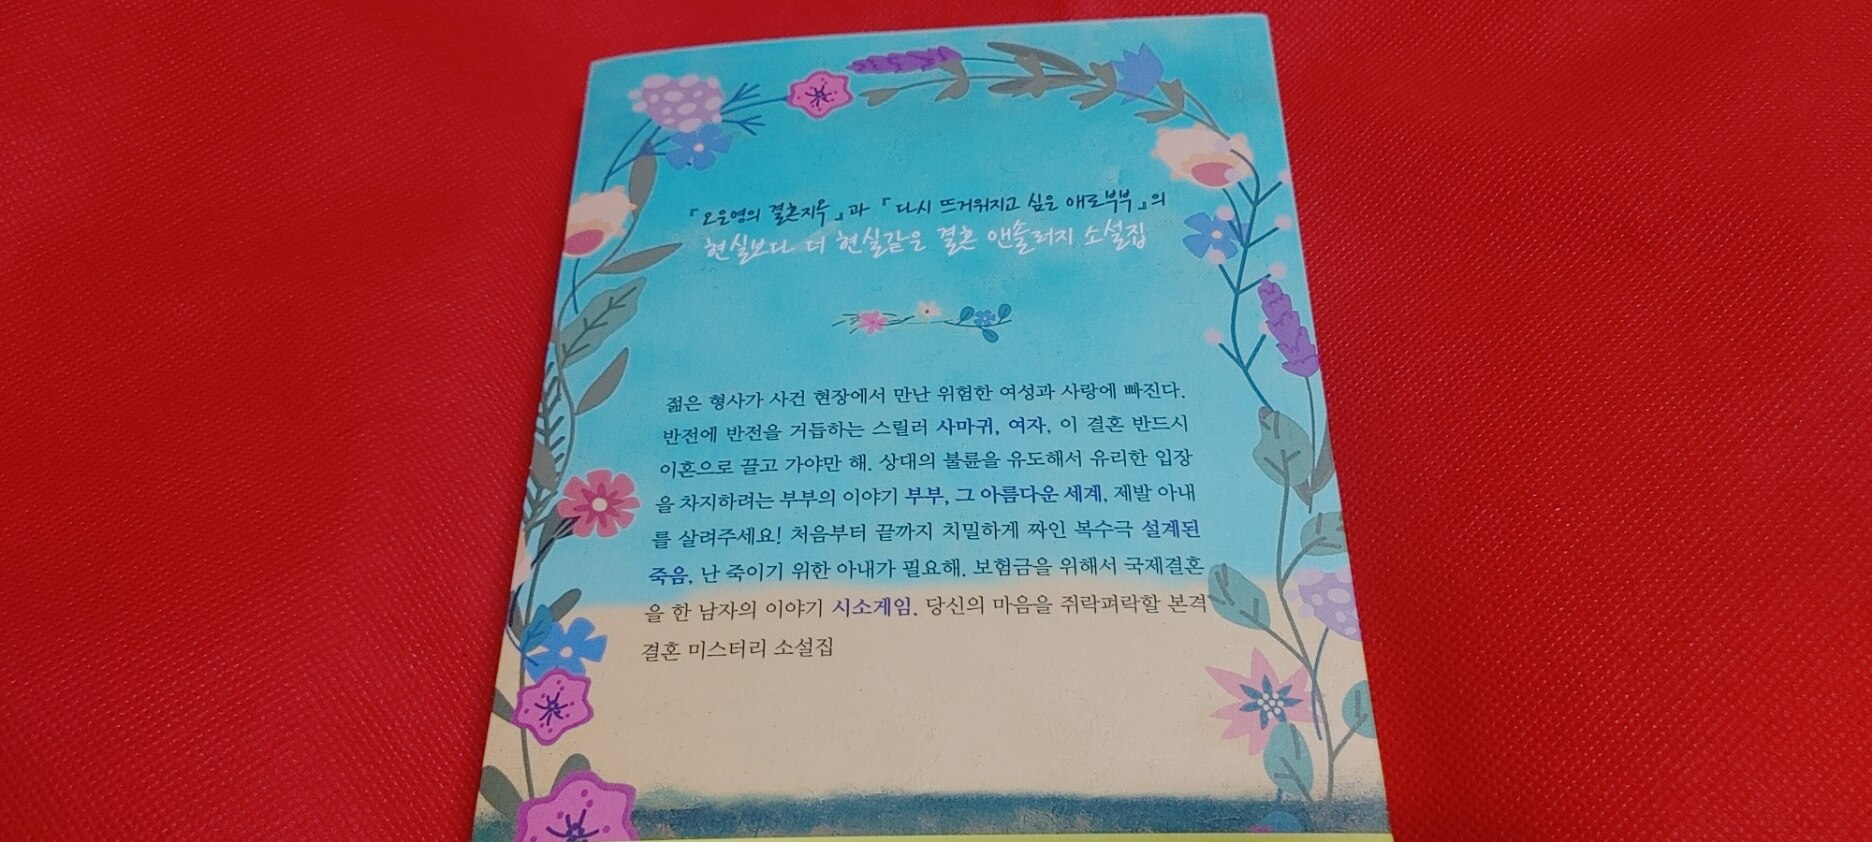 『오은영의 결혼지옥』과 『다시 뜨거워지고 싶은 애로부부』의
현실보다 더 현실같은 결혼 앤솔러지 소설집
젊은 형사가 사건 현장에서 만난 위험한 여성과 사랑에 빠진다.
반전에 반전을 거듭하는 스릴러 사마귀, 여자, 이 결혼 반드시
이혼으로 끌고 가야만 해. 상대의 불륜을 유도해서 유리한 입장
을 차지하려는 부부의 이야기 부부, 그 아름다운 세계, 제발 아내
를 살려주세요! 처음부터 끝까지 치밀하게 짜인 복수극 설계된
죽음, 난 죽이기 위한 아내가 필요해. 보험금을 위해서 국제결혼
을 한 남자의 이야기 시소게임. 당신의 마음을 쥐락펴락할 본격
결혼 미스터리 소설집